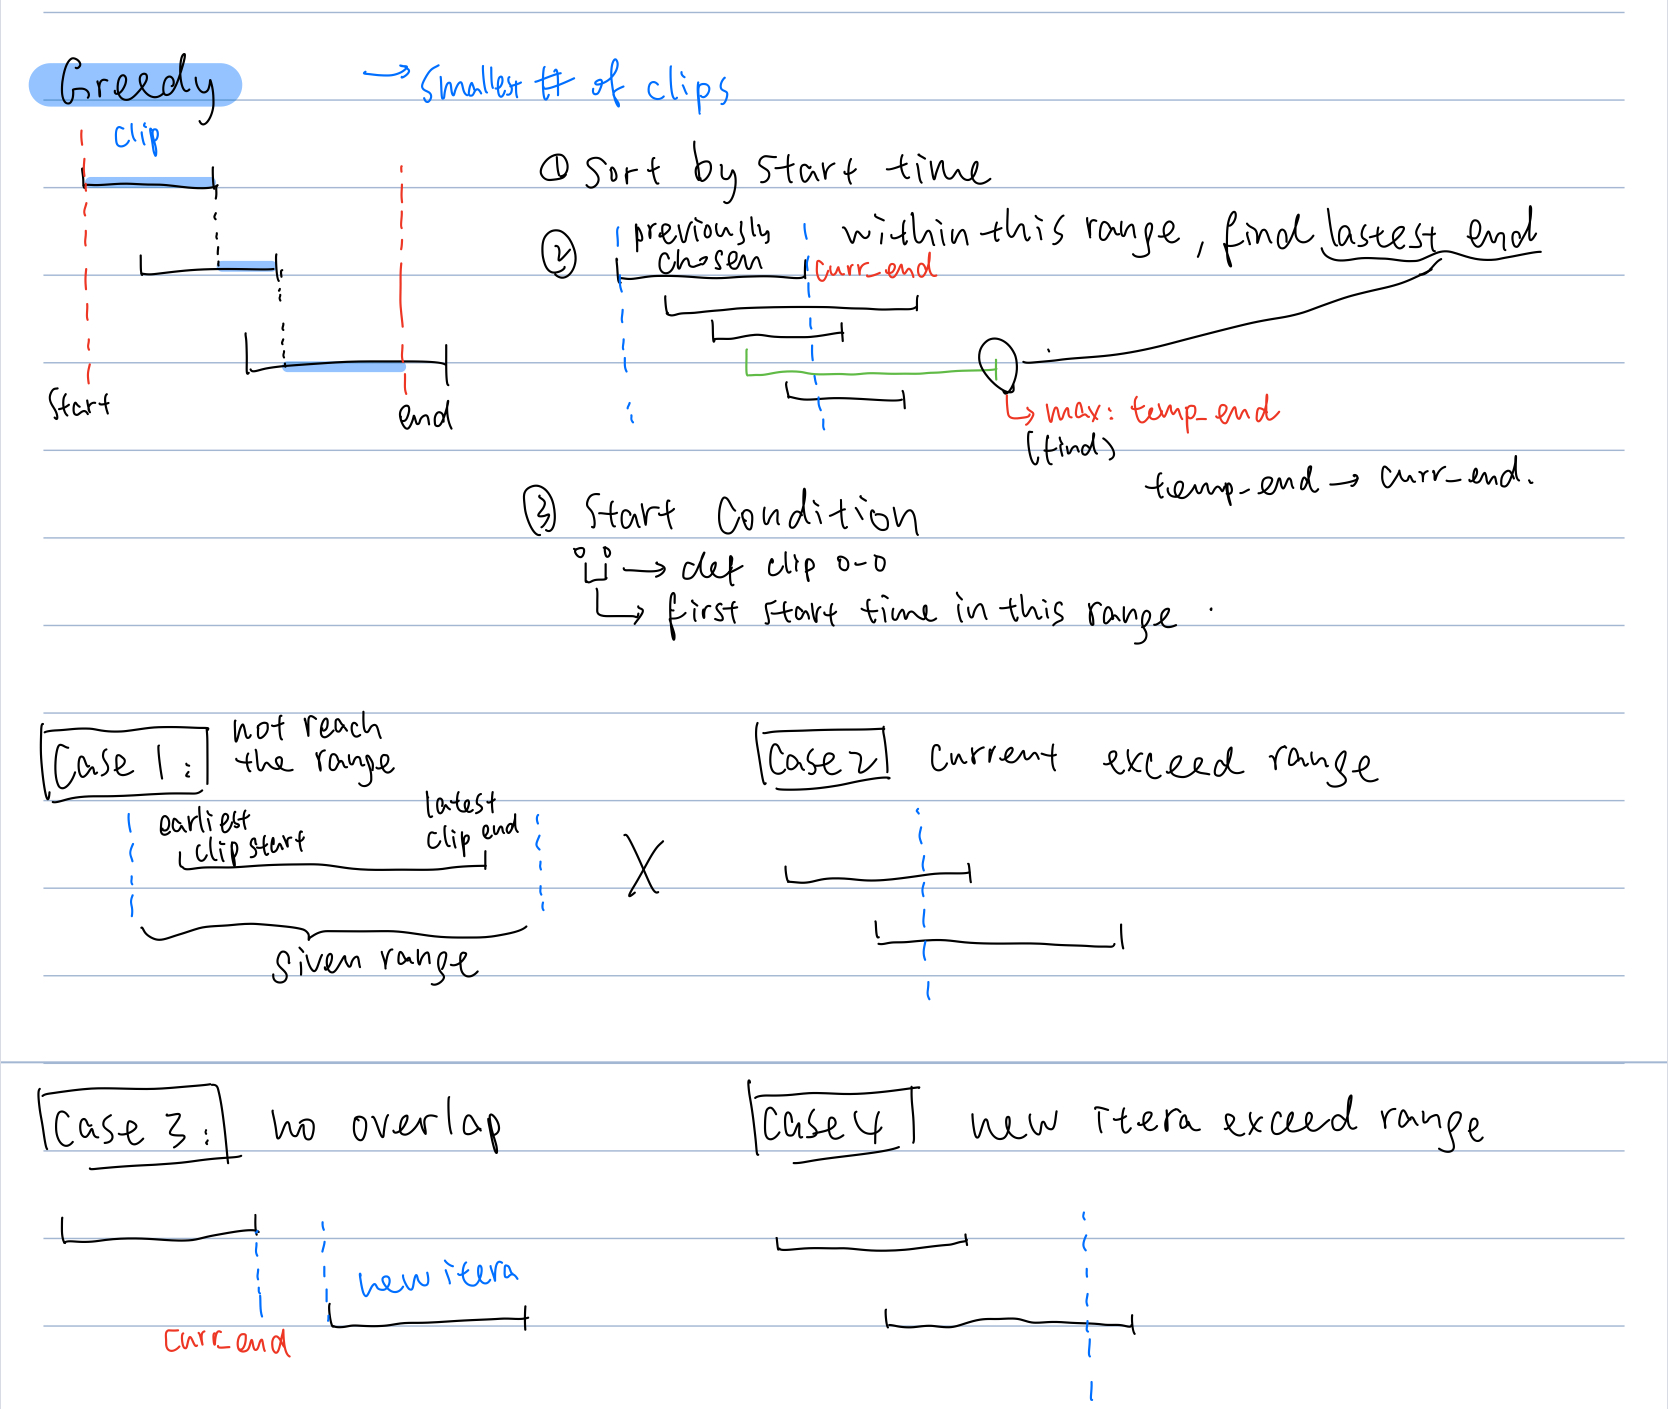 Greedy → Smallest # of clips
clip
① Sort by start time
② previously chosen within this range, find lastest end
curr_end
start
end
↳ max: temp_end
(find)
temp_end → curr_end.
③ Start Condition
0 0 → def clip 0-0
↳ first start time in this range .
Case 1: not reach the range
earliest clip start
latest clip end
X
given range
Case 2 current exceed range
Case 3: no overlap
new itera
curr_end
Case 4 new itera exceed range